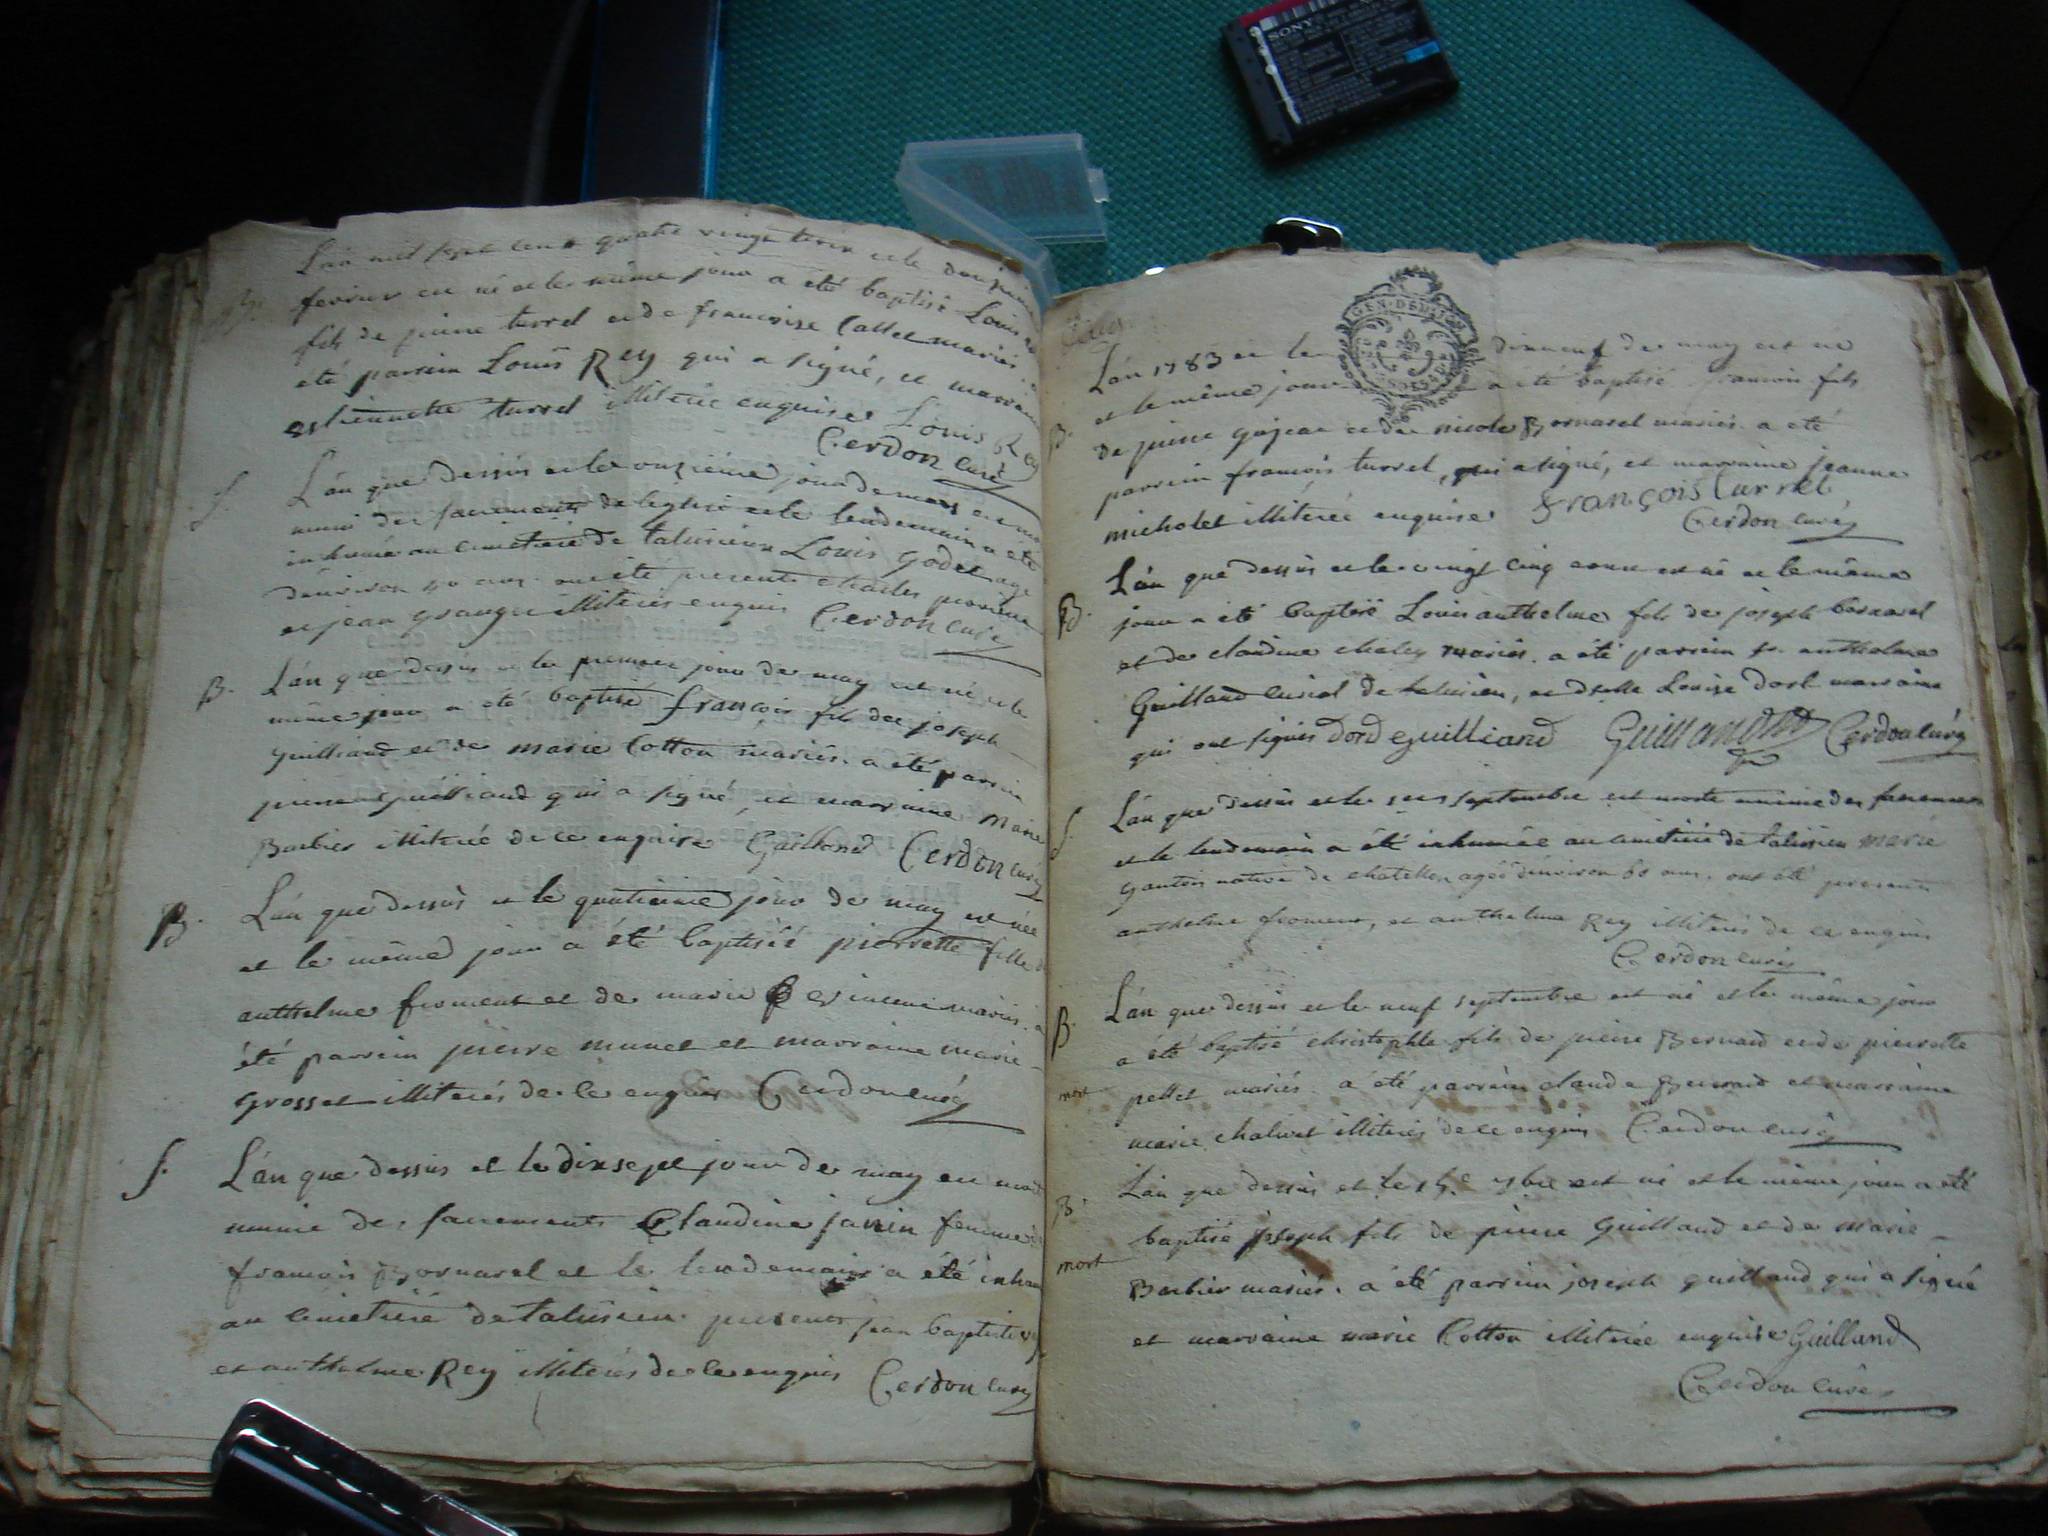 SONY
B.
L'an mil sept cent quatre vingt trois et le
fevrier est né et le même jour a été baptisé Louis
fils de pierre turrel et de francoise Callet mariés. a
été parrein Louis Rey qui a signé, et marraine
estiennette turrel illiterée enquise Louis Rey
Cerdon curé
S.
L'an que dessus et le onzieme jour de mars est mort
muni des sacrements de l'eglise et le lendemain a été
inhumé au cimetiere de talissieu Louis Godet agé
d'environ ans. ont été presents charles
et jean granger illiterés enquis Cerdon curé
B.
L'an que dessus et le premier jour de may est né et le
même jour a été baptisé françois fils de joseph
guilland et de marie Cotton mariés. a été parrein
pierre guilliand qui a signé, et marraine Marie
Barbier illiterée de ce enquise Guilland Cerdon curé
B.
L'an que dessus et le quatrieme jour de may est née
et le même jour a été baptisée pierrette fille
anthelme froment et de marie mariés. a
été parrein pierre munet et marraine marie
Grosset illiterés de ce enquis Cerdon curé
S.
L'an que dessus et le dixsept jour de may est morte
munie des sacrements Claudine janin femme
francois Bornarel et le lendemain a été inhumée
au cimetiere de talissieu presents jean baptiste
et anthelme Rey illiterés de ce enquis Cerdon curé
GEN. DE DIJON
L'an 1783 et le dixneuf de may est né
et le même jour a été baptisé francois fils
B.
de pierre gojeat et de nicole Bornarel mariés. a été
parrein françois turrel, qui a signé, et marraine jeanne
micholet illiterée enquise François Turrel
Cerdon curé
L'an que dessus et le vingt cinq est né et le même
B.
jour a été baptisé Louis anthelme fils de joseph bornarel
et de claudine chaley mariés. a été parrein sr. anthelme
Guilland curial de talissieu, et dselle Louise Dord marraine
qui ont signés Dord Guilliand Guilland Cerdon curé
L'an que dessus et le septembre est morte munie des sacremens
S.
et le lendemain a été inhumée au cimetiere de talissieu Marie
Ganton native de chatillon agée d'environ 60 ans. ont été presents
anthelme froment, et anthelme Rey illiterés de ce enquis
Cerdon curé
L'an que dessus et le neuf septembre est né et le même jour
B.
a été baptisé christophle fils de pierre Bernard et de pierrette
mort
pellet mariés. a été parrein claude Bernard et marraine
marie chalivet illiterés de ce enquis Cerdon curé
L'an que dessus et le 7bre est né et le même jour a été
B.
baptisé joseph fils de pierre Guilland et de Marie
mort
Barbier mariés. a été parrein joseph guilland qui a signé
et marraine marie Cotton illiterée enquise Guilland
Cerdon curé